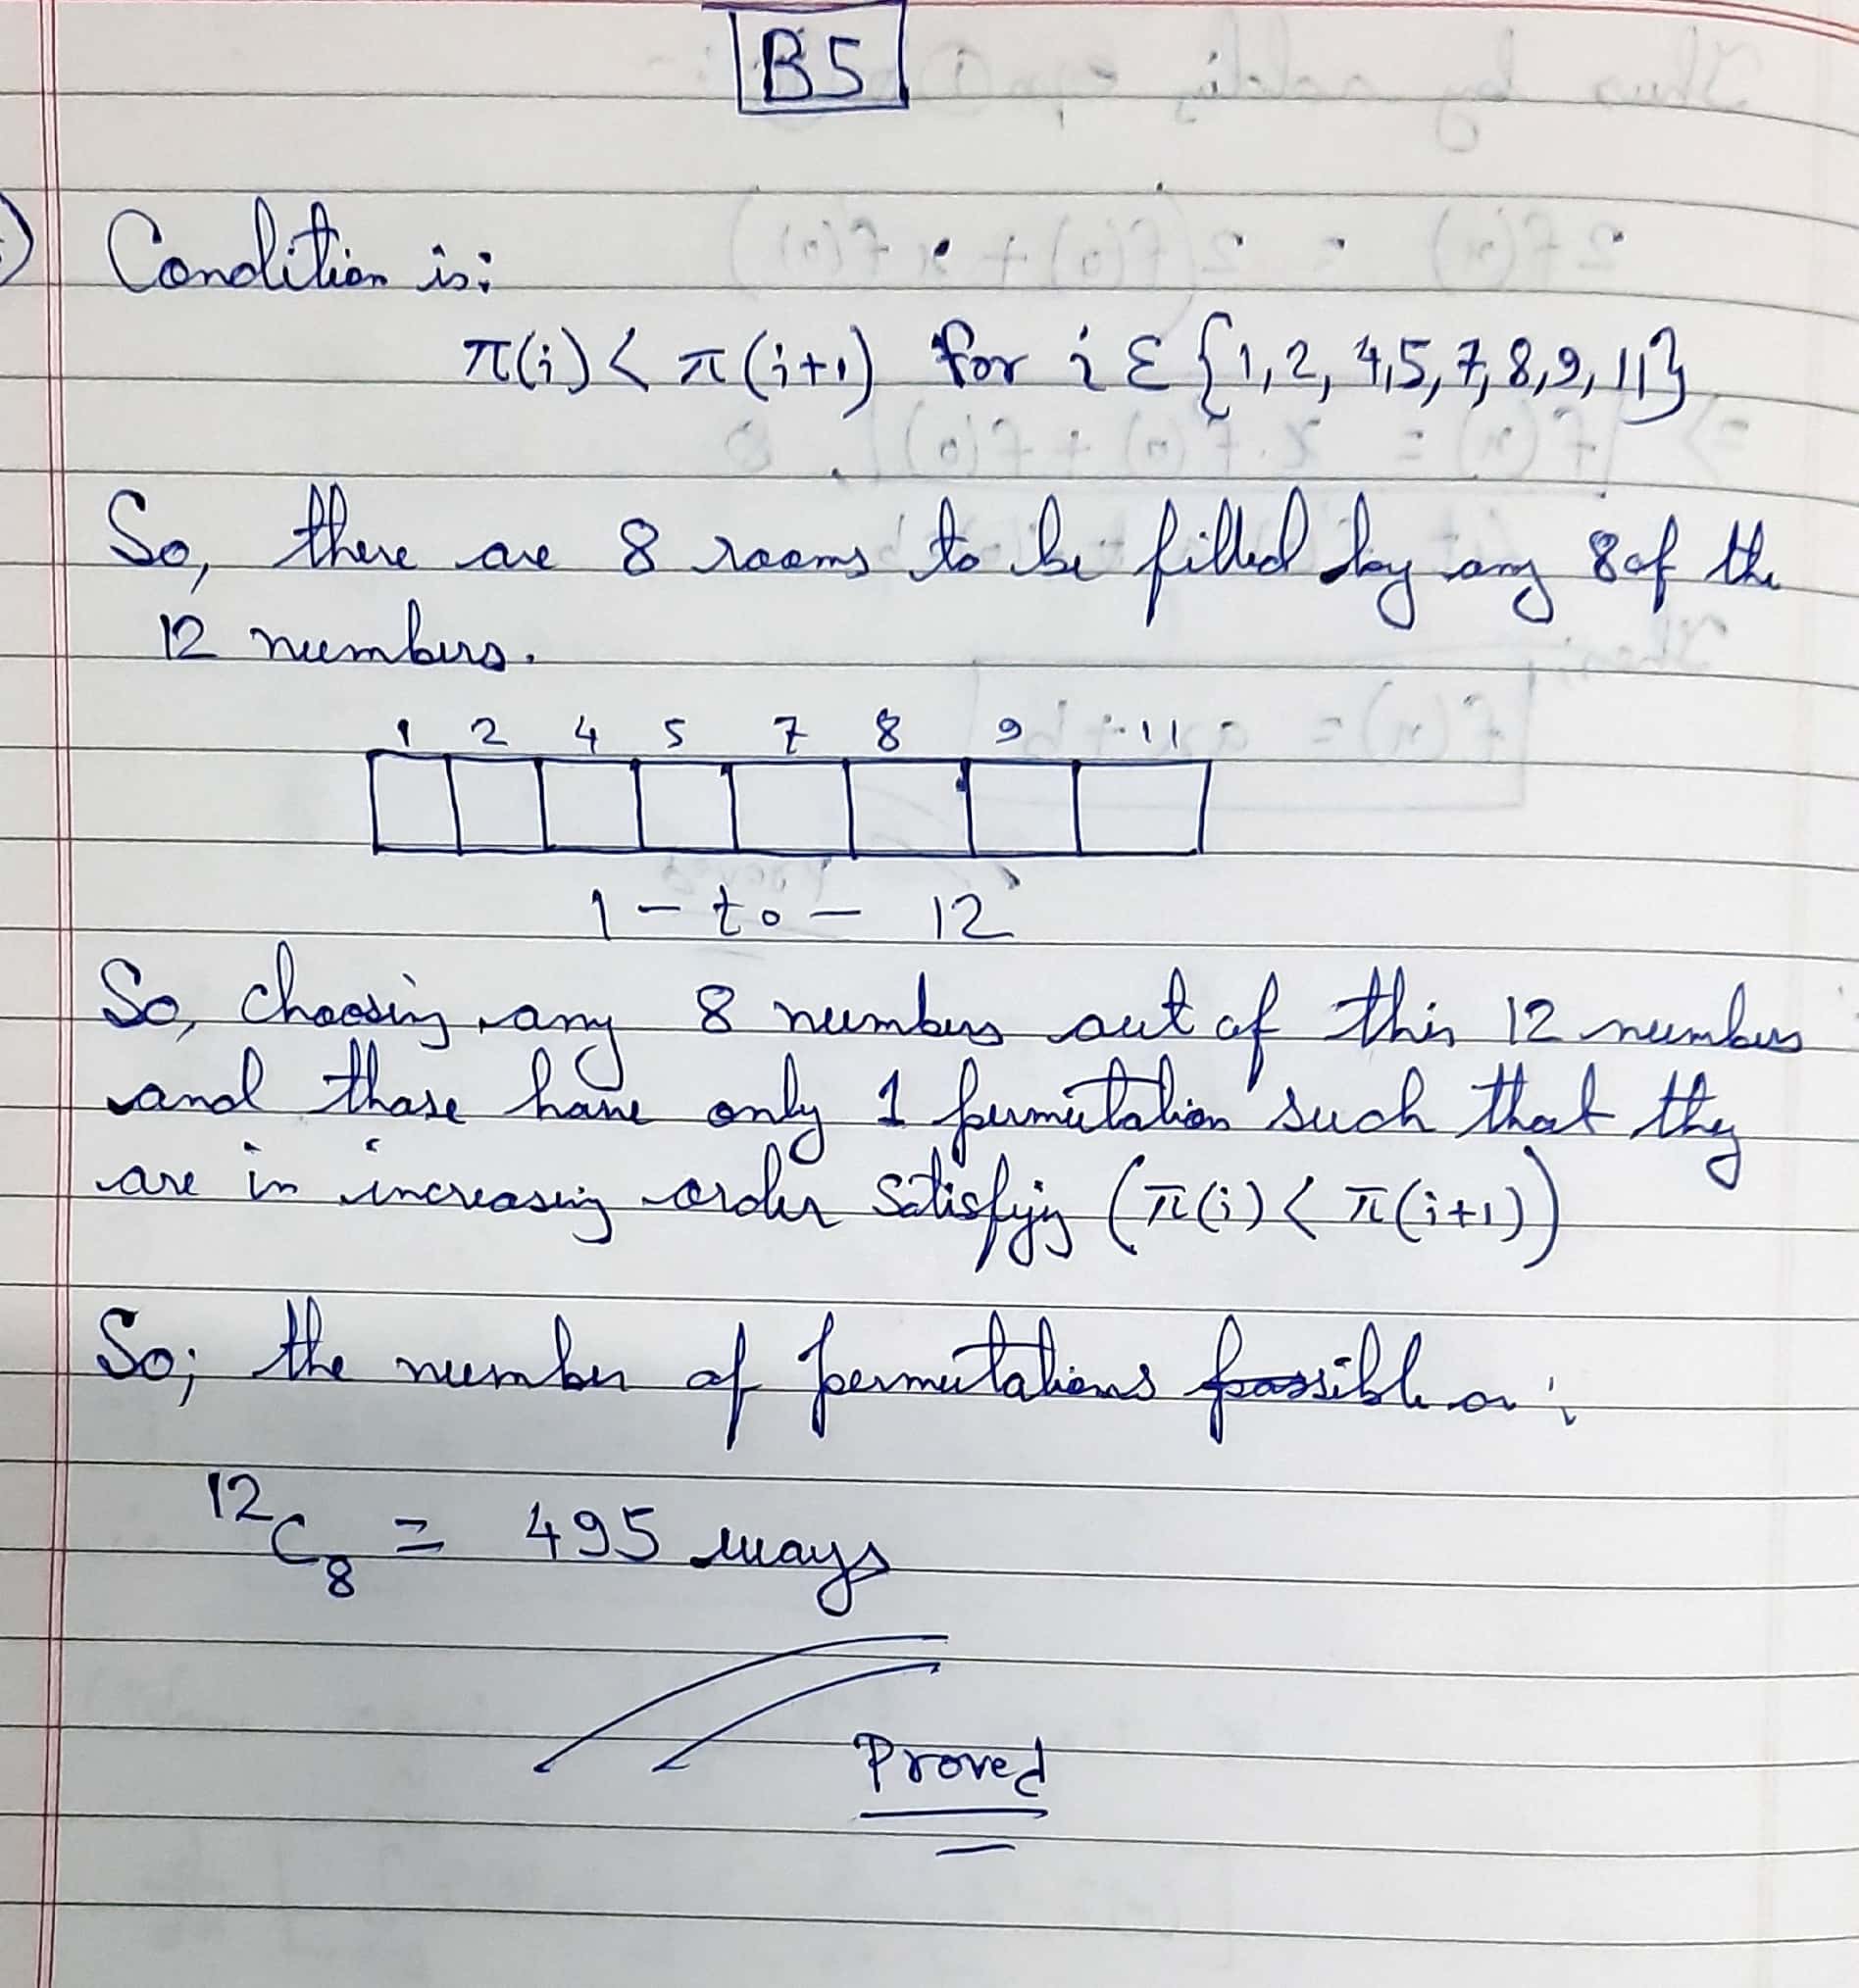 B5
Condition is:
π(i) < π(i+1) for i ε {1, 2, 4, 5, 7, 8, 9, 11}
So, there are 8 rooms to be filled by any 8 of the
12 numbers.
1 2 4 5 7 8 9 11
1 - to - 12
So, choosing any 8 numbers out of this 12 numbers
and those have only 1 permutation such that they
are in increasing order satisfying (π(i) < π(i+1))
So; the number of permutations possible
¹²C₈ = 495 ways
Proved